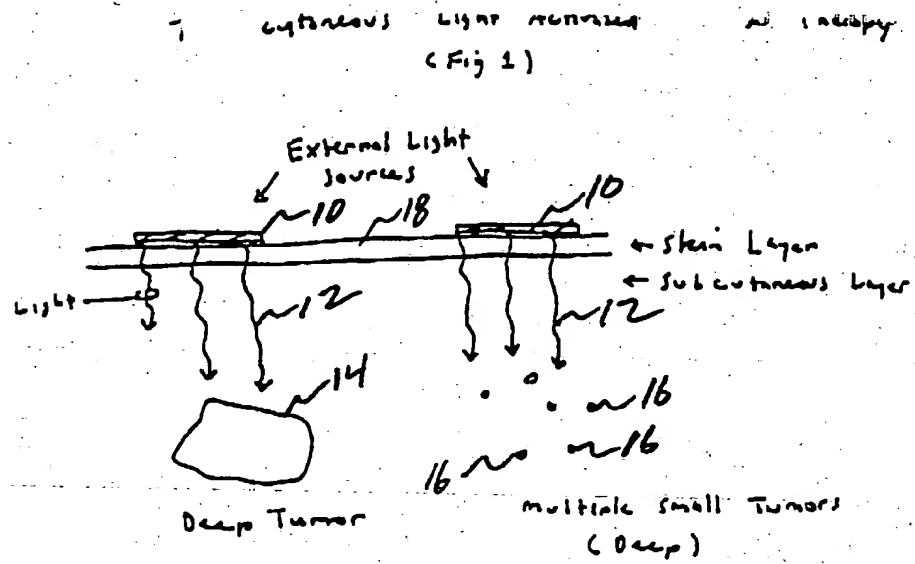 cutaneous Light
(Fig 1)
External Light
Sources
10
18
10
← Skin Layer
← Subcutaneous Layer
Light
12
12
14
16
16
16
Deep Tumor
multiple small Tumors
(Deep)